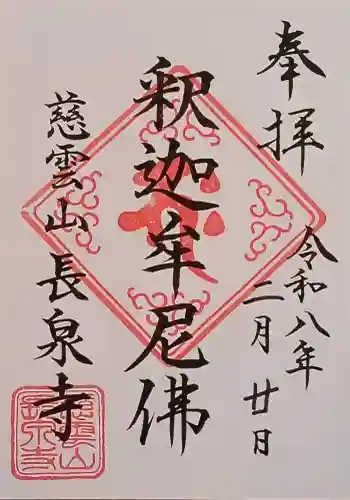 奉拝
令和八年
二月廿日
釈迦牟尼佛
慈雲山長泉寺
慈雲山
長泉寺